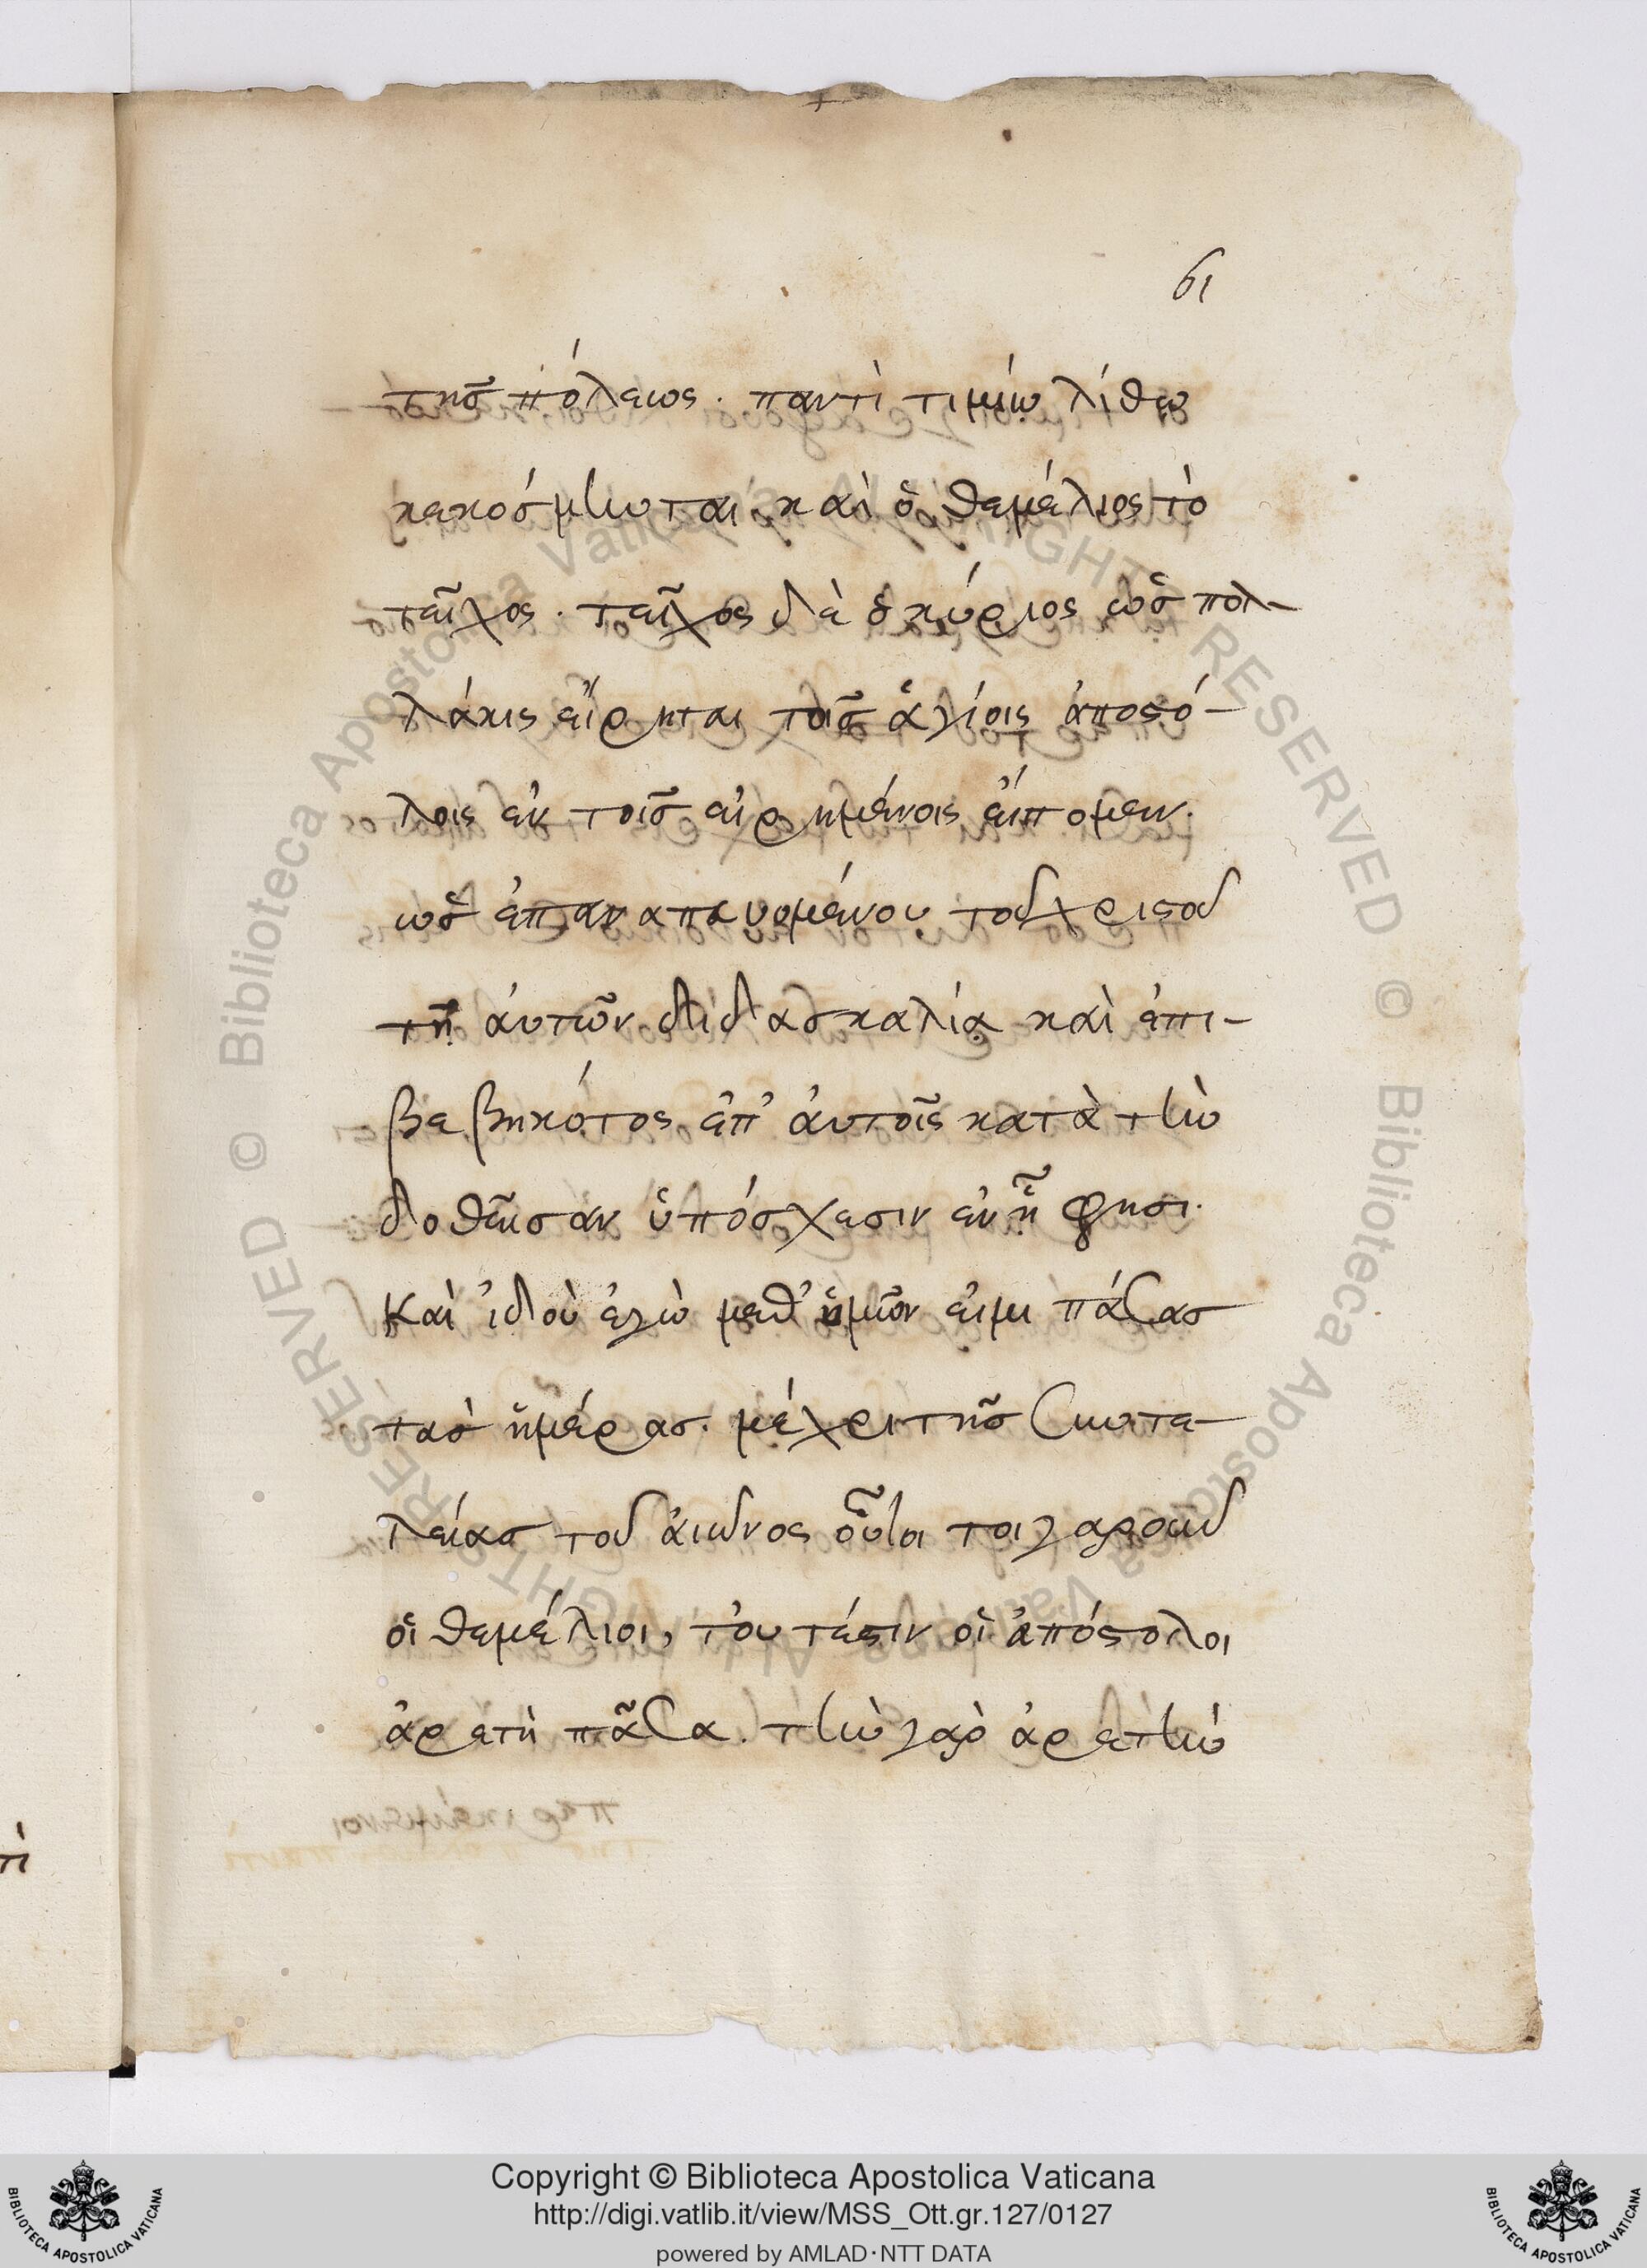 61
τῆς πόλεως. παντὶ τιμίῳ λίθῳ
κεκόσμηνται καὶ ὁ θεμέλιος τὸ
τεῖχος. τεῖχος δὲ ὁ κύριος ὡς πολ-
λάκις εἴρηται τοῖς ἁγίοις ἀποστό-
λοις ἐν τοῖς εἰρημένοις εἴπομεν.
ὡς ἐπαναπαυομένου τοῦ χριστοῦ
τῇ αὐτῶν διδασκαλίᾳ καὶ ἐπι-
βεβηκότος ἐπ' αὐτοῖς κατὰ τὴν
δοθεῖσαν ὑπόσχεσιν ἐν ᾗ φησι.
Καὶ ἰδοὺ ἐγὼ μεθ' ὑμῶν εἰμι πάσας
τὰς ἡμέρας. μέχρι τῆς συντε-
λείας τοῦ αἰῶνος οὗτοι τοιγαροῦν
οἱ θεμέλιοι, τουτέστιν οἱ ἀπόστολοι
ἀρετὴ πᾶσα. τὴν γὰρ ἀρετὴν
Copyright © Biblioteca Apostolica Vaticana
http://digi.vatlib.it/view/MSS_Ott.gr.127/0127
powered by AMLAD·NTT DATA
BIBLIOTECA APOSTOLICA VATICANA
BIBLIOTECA APOSTOLICA VATICANA